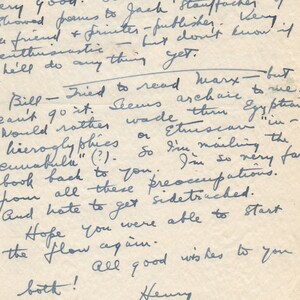 very good.
showed poems to Jack Stauffacher
a friend & printer-publisher. Very
enthusiastic — but don't know if
he'll do anything yet.
Bill — Tried to read Marx — but
can't go it. Seems archaic to me.
Would rather wade thru Egyptian
hieroglyphics or Etruscan "in-
cunabula" (?). So I'm mailing the
book back to you. I'm so very far
from all these preoccupations.
And hate to get sidetracked.
Hope you were able to start
the flow again.
All good wishes to you
both!
Henry